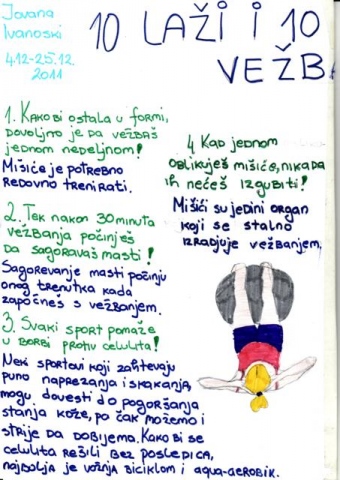 Jovana
Ivanoski
4.12-25.12
2011
10 LAŽI I 10
VEŽB
1. KAKO BI OSTALA U FORMI,
DOVOLJNO JE DA VEŽBAŠ
JEDNOM NEDELJNOM!
MIŠIĆE JE POTREBNO
REDOVNO TRENIRATI.
2. TEK NAKON 30 MINUTA
VEŽBANJA POČINJEŠ
DA SAGOREVAŠ MASTI!
SAGOREVANJE MASTI POČINJU
ONOG TRENUTKA KADA
ZAPOČNEŠ S VEŽBANJEM.
3. SVAKI SPORT POMAŽE
U BORBI PROTIV CELULITA!
NEKI SPORTOVI KOJI ZAHTEVAJU
PUNO NAPREZANJA I SKAKANJA,
MOGU DOVESTI DO POGORŠANJA
STANJA KOŽE, PO ČAK MOŽEMO I
STRIJE DA DOBIJEMA. KAKO BI SE
CELULITA REŠILI BEZ POSLEDICA,
NAJBOLJA JE VOŽNJA BICIKLOM I AQUA-AEROBIK.
4 KAD JEDNOM
OBLIKUJEŠ MIŠIĆE, NIKADA
IH NEĆEŠ IZGUBITI!
MIŠIĆI SU JEDINI ORGAN
KOJI SE STALNO
IZRADJUJE VEŽBANJEM,